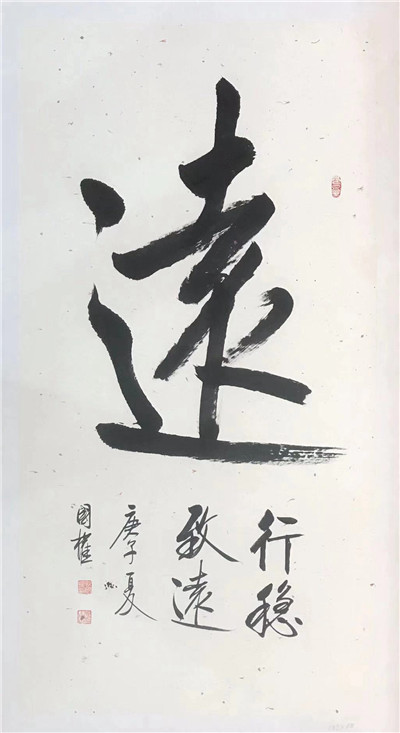 遠
行穩
致遠
庚子夏
國權